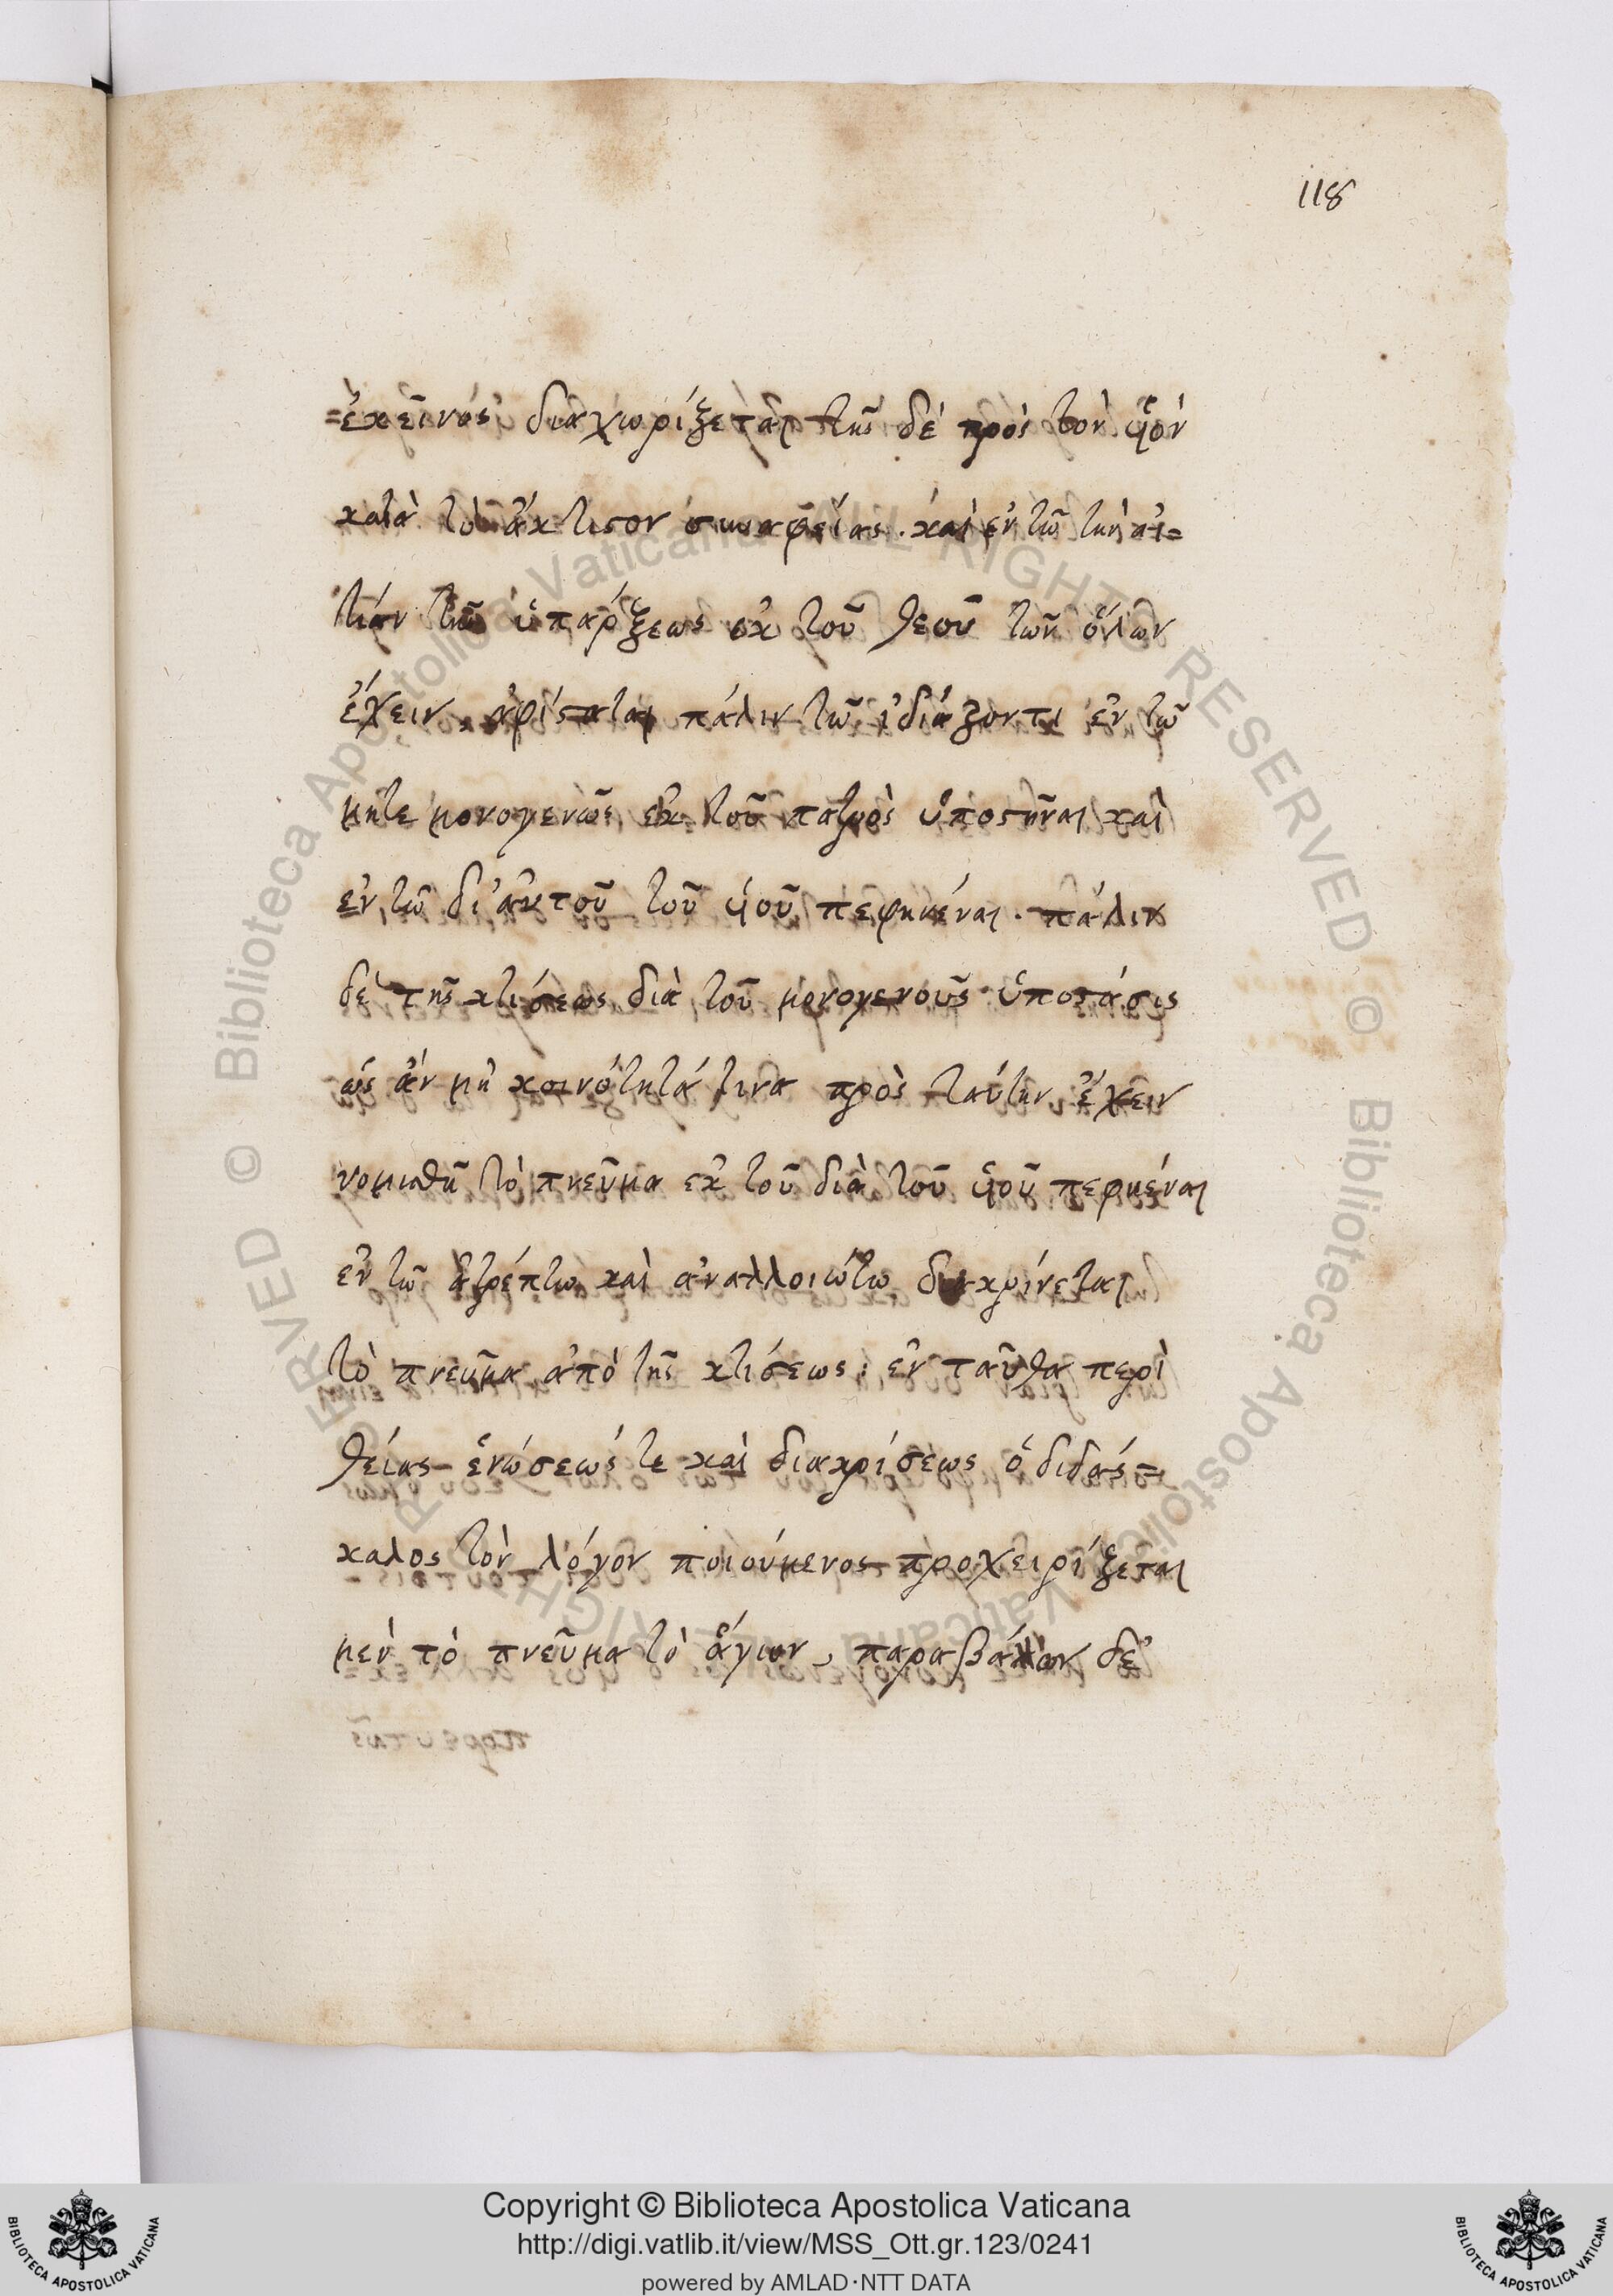 118
=ἐκεῖνος διαχωρίζεται τῆς δὲ πρὸς τὸν ὑἱὸν
κατὰ τὸ ἄκτιστον συναφείας. καὶ ἐν τῶ τὴν αἰ=
τίαν τῆς ὑπάρξεως ἐκ τοῦ θεοῦ τῶν ὅλων
ἔχειν, ἀφίσταται πάλιν τῶ ἰδιάζοντι ἐν τῶ
μήτε μονογενῶς ἐκ τοῦ πατρὸς ὑποστῆναι καὶ
ἐν τῶ δι' αὐτοῦ τοῦ ὑἱοῦ πεφηνέναι. πάλιν
δὲ τῆς κτίσεως διὰ τοῦ μονογενοῦς ὑποστάσις
ὡς ἂν μὴ κοινότητά τινα πρὸς ταύτην ἔχειν
νομισθῆ τὸ πνεῦμα ἐκ τοῦ διὰ τοῦ ὑἱοῦ πεφηέναι
ἐν τῶ ἀτρέπτω καὶ ἀναλλοιώτω διακρίνεται
τὸ πνεῦμα ἀπὸ τῆς κτίσεως: ἐν ταῦθα περὶ
θείας ἑνώσεώς τε καὶ διακρίσεως ὁ διδάσ=
καλος τὸν λόγον ποιούμενος προχειρίζεται
μὲν τὸ πνεῦμα τὸ ἅγιον, παραβάλλον δὲ
Copyright © Biblioteca Apostolica Vaticana
http://digi.vatlib.it/view/MSS_Ott.gr.123/0241
powered by AMLAD·NTT DATA